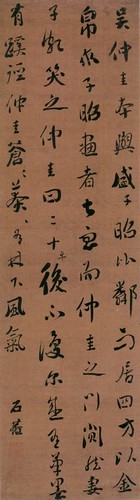 吴仲圭本與盛子昭比鄰而居四方以金
帛求子昭畫者甚面仲圭之門闃然妻
子頗笑之仲圭曰二十年後不復尔盛雖工實
有蹊逕仲圭蒼蒼莽莽有林下風氣
石菴